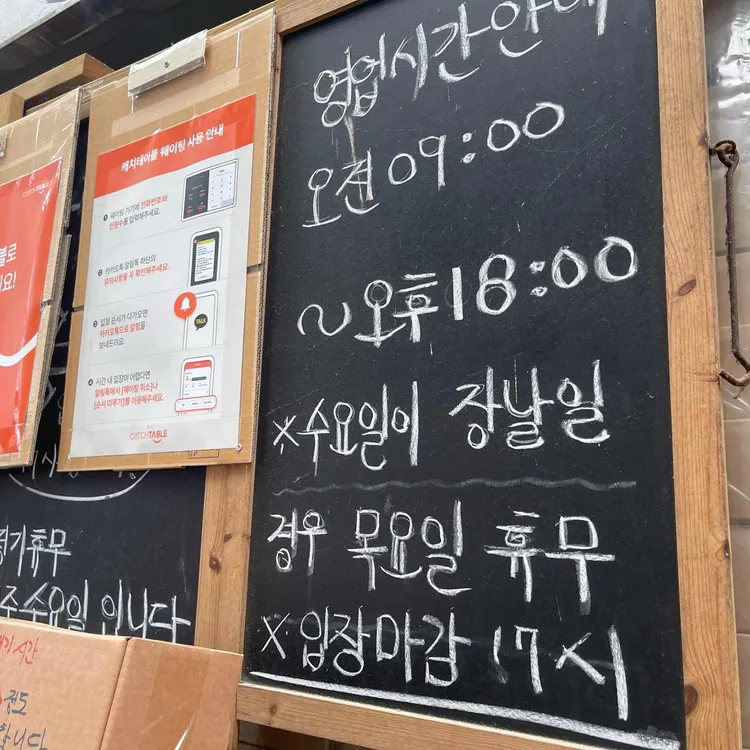 영업시간 안내
오전 09:00
~ 오후 18:00
※수요일이 장날일
경우 목요일 휴무
※입장마감 17시
캐치테이블 웨이팅 사용 안내
1 웨이팅 기기에 전화번호와
인원수를 입력해주세요.
2 카카오톡 알림톡 하단의
유의사항을 꼭 확인해주세요.
3 입장 순서가 다가오면
카카오톡으로 알림을
보내드려요.
TALK
4 시간 내 입장이 어렵다면
알림톡에서 [웨이팅 취소]나
[순서 미루기]를 이용해주세요.
CATCHTABLE
CATCHTABLE
블로
요!
정기휴무
주 수요일 입니다
시간
정도
합니다